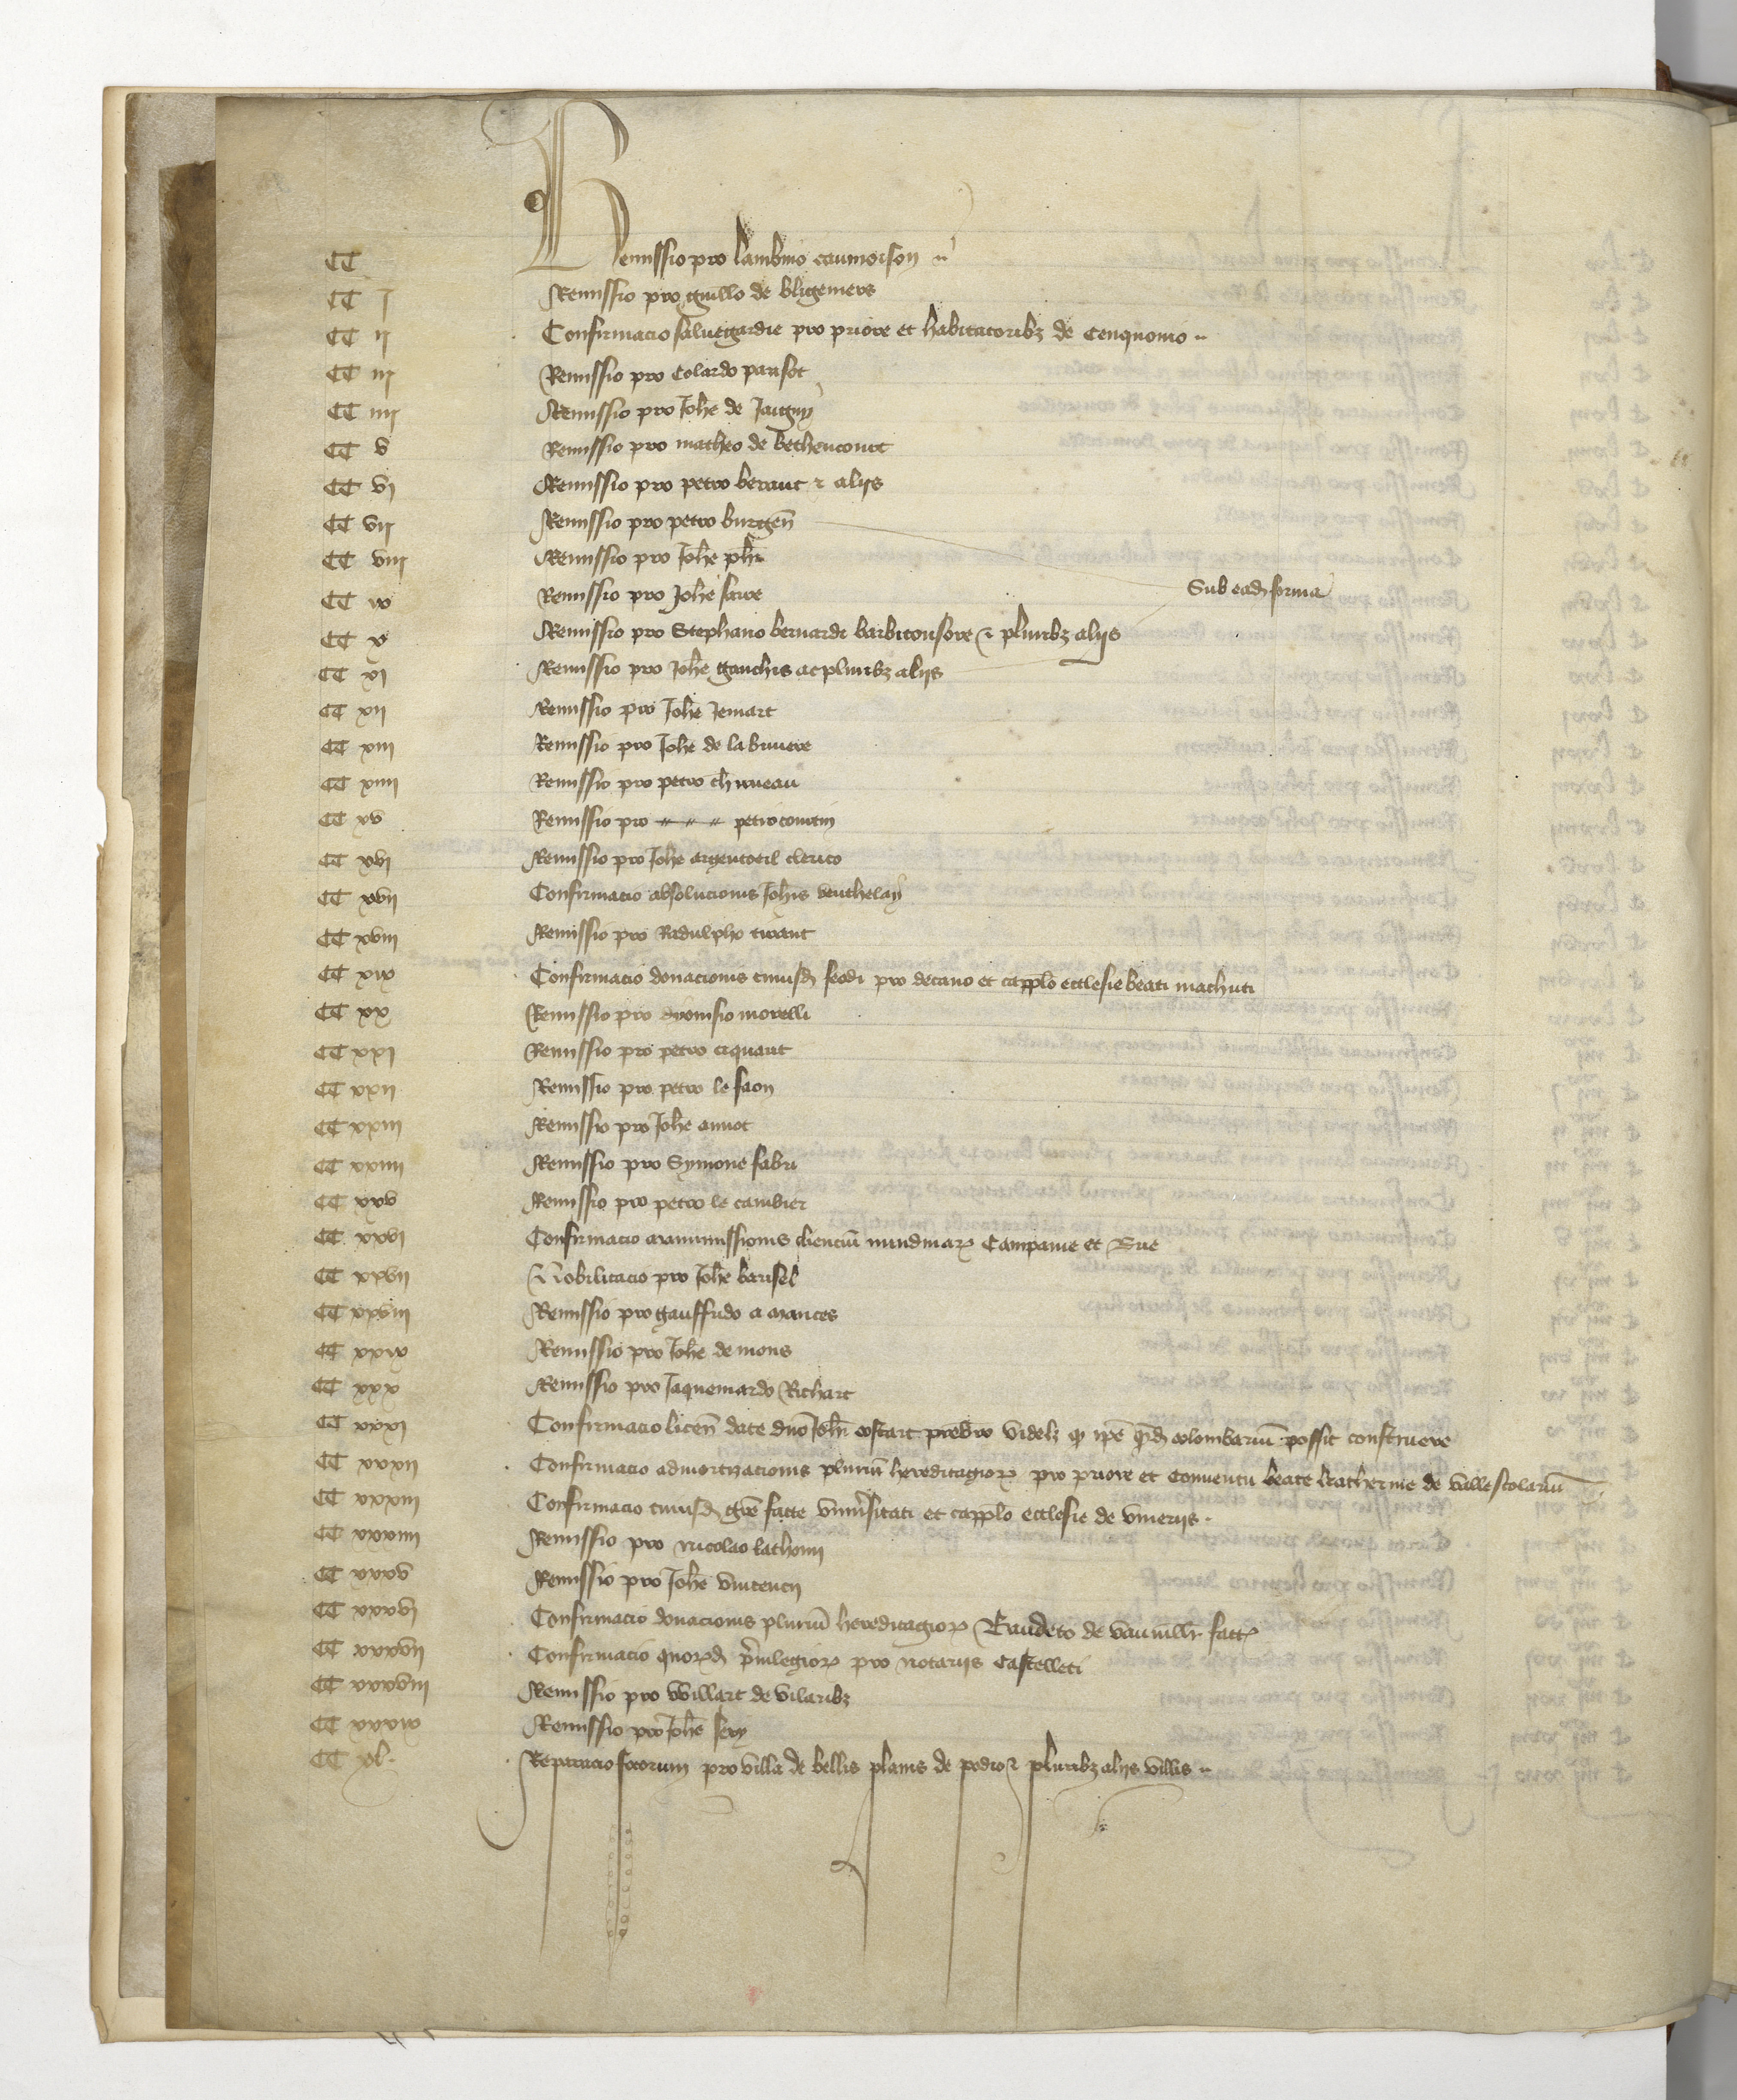 CC Remissio pro lambino caumoison
CC I Remissio pro guillo de bligemers
CC II Confirmacio salvegardie pro priore et habitatoribz de Cenquomo
CC III Remissio pro Colardo pansot
CC IIII Remissio pro Johe de Jaugny
CC V Remissio pro matheo de bethencourt
CC VI Remissio pro petro beraut & aliis
CC VII Remissio pro petro burgen
CC VIII Remissio pro Johe phi
CC IX Remissio pro Johe favre
Sub ead forma
CC X Remissio pro Stephano bernardi barbitonsore & pluribz aliis
CC XI Remissio pro Johe gauchis ac pluribz aliis
CC XII Remissio pro Johe Jemart
CC XIII Remissio pro Johe de la bruiere
CC XIIII Remissio pro petro chaveau
CC XV Remissio pro petro comtin
CC XVI Remissio pro Johe argentoeil clerico
CC XVII Confirmacio absolucionis Johis
CC XVIII Remissio pro Radulpho tirant
CC XIX Confirmacio donacionis cuiusd feodi pro decano et capplo ecclesie beati machuti
CC XX Remissio pro dionisio morelli
CC XXI Remissio pro petro ciquart
CC XXII Remissio pro petro le faon
CC XXIII Remissio pro Johe annot
CC XXIIII Remissio pro Symone fabri
CC XXV Remissio pro petro le cambier
CC XXVI Confirmacio manumissionis clientiu nundinar Campanie et Brie
CC XXVII Nobilitacio pro Johe barisel
CC XXVIII Remissio pro gauffrido a mances
CC XXIX Remissio pro Johe de mons
CC XXX Remissio pro Jaquemardo Richart
CC XXXI Confirmacio licen date dno Johi costart presbro videlz q ipe qd colombariu possit construere
CC XXXII Confirmacio admortizacionis pluriu hereditagior pro priore et Conventu beate katherine de vallescolariu
CC XXXIII Confirmacio cuiusd gre facte universitati et capplo ecclesie de vineriis
CC XXXIIII Remissio pro nicolao tathoun
CC XXXV Remissio pro Johe vincencii
CC XXXVI Confirmacio donacionis pluriu hereditagior Eraudeto de facte
CC XXXVII Confirmacio quord privilegior pro notariis Castelleti
CC XXXVIII Remissio pro Willart de vilaribz
CC XXXIX Remissio pro Johe sevy
CC XL Reparacio focorum pro villa de bellis planis de podio & pluribz aliis villis